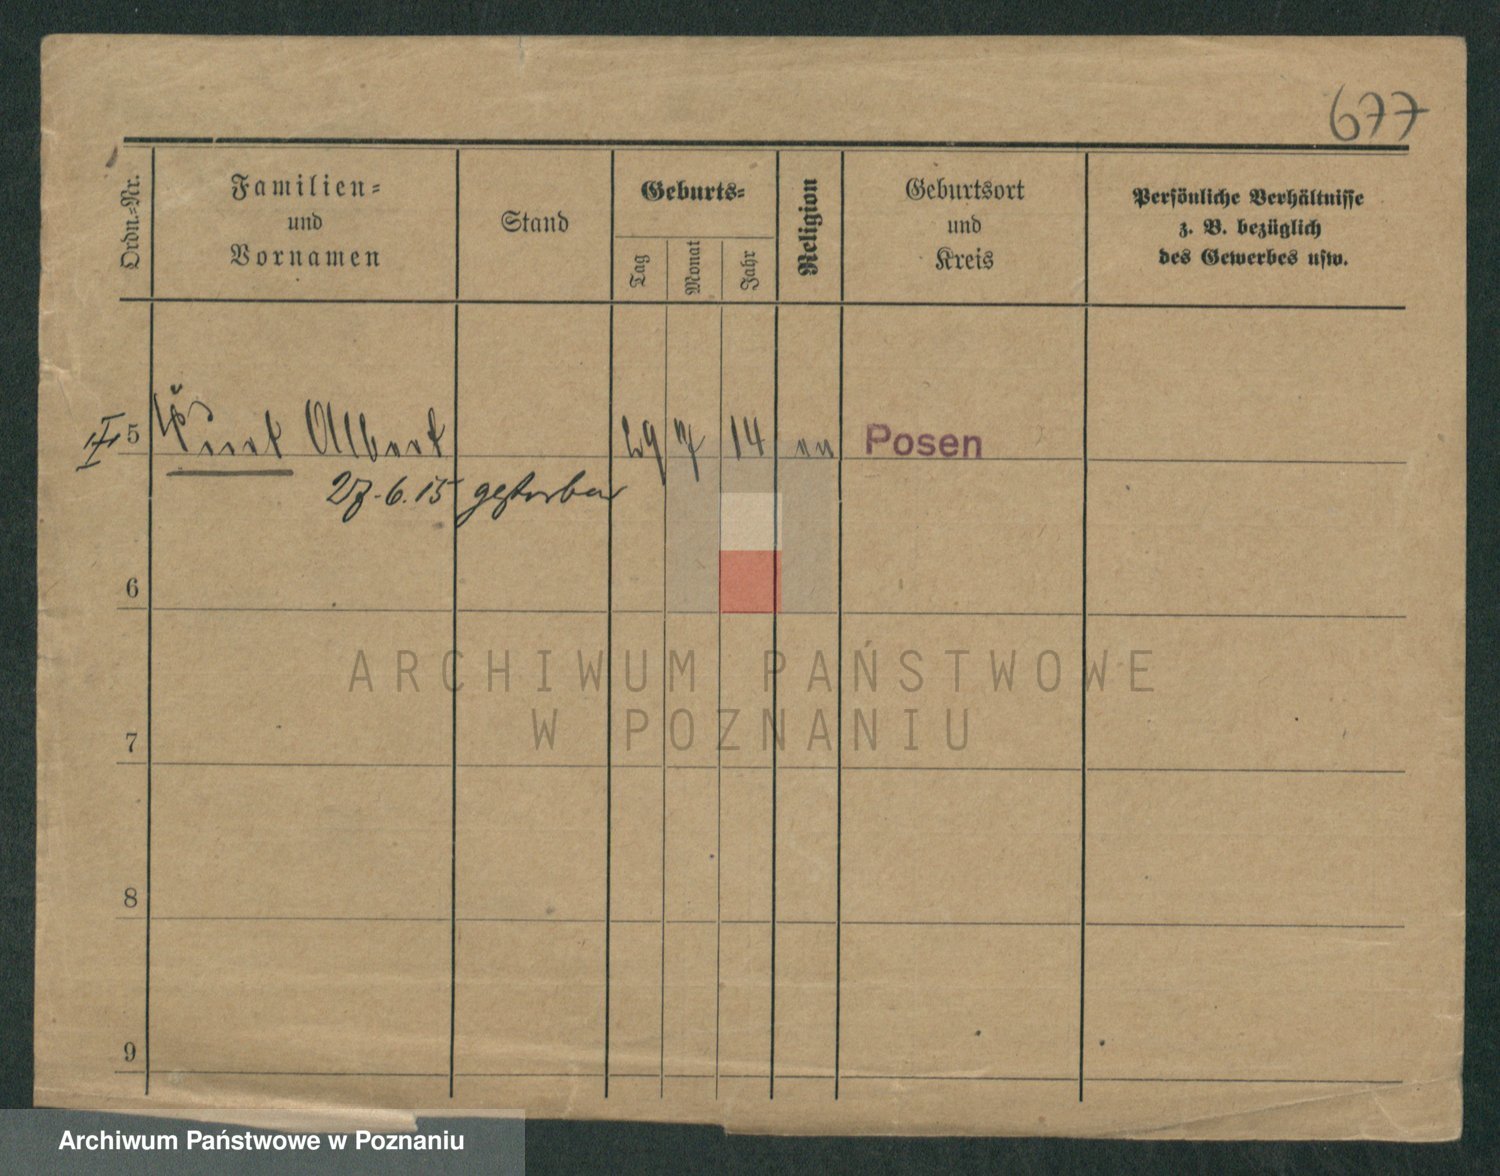 677
Ordn.-Nr.
Familien-
und
Vornamen
Stand
Geburts-
Tag
Monat
Jahr
Religion
Geburtsort
und
Kreis
Persönliche Verhältnisse
z. B. bezüglich
des Gewerbes usw.
5 Kurt Albert 29 7 14 Posen
27.6.15 gestorben
6
ARCHIWUM PAŃSTWOWE
W POZNANIU
7
8
9
Archiwum Państwowe w Poznaniu